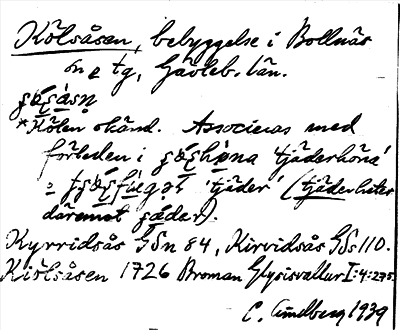 Kölsåsen, bebyggelse i Bollnäs
sn o tg, Gävleb. län.
*Kölen okänd. Associeras med
förleden i tjäderhöna'
'tjäder' (tjäder heter
däremot
Kyrridsås GSn 84, Kirvidsås GSs 110.
Kiölsåsen 1726 Broman Glysisvallur I:4:275.
C. Lindberg 1939